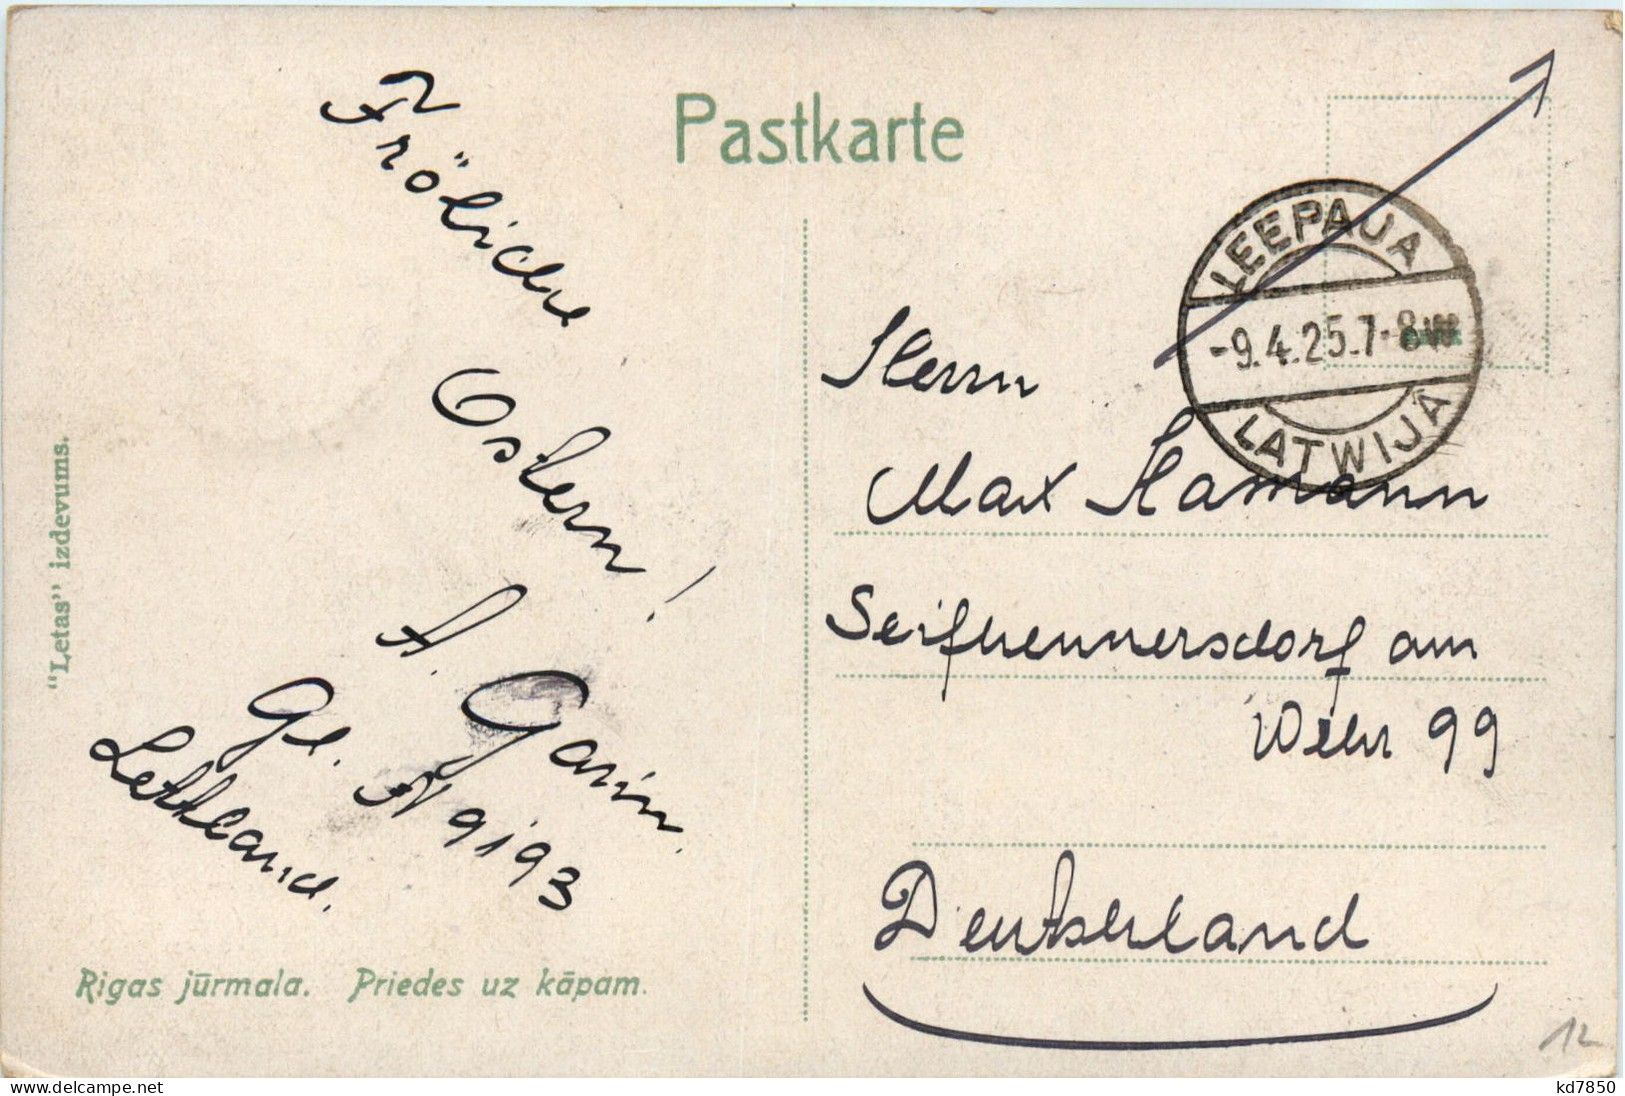 Pastkarte
Fröliche
Ostern!
A. Garin.
Gl. N 9193
Lettland.
"Letas" izdevums.
Rigas jūrmala. Priedes uz kāpam.
LEEPAJA
-9.4.25.7-8
LATWIJĀ
Herrn
Max Hamann
Seifhennersdorf am
Wehr 99
Deutschland
12
www.delcampe.net
kd7850